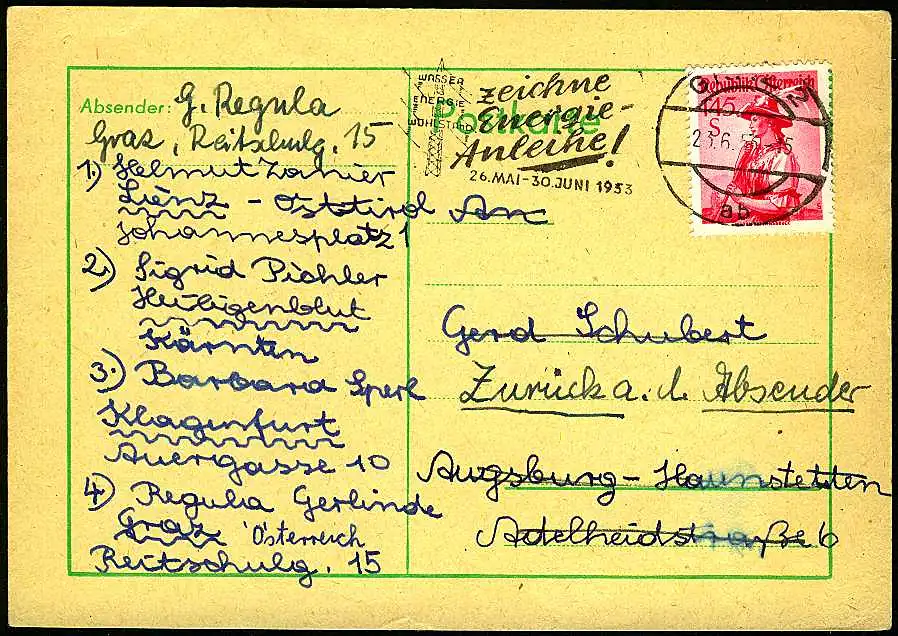 Absender: G. Regula
Graz, Reitschulg. 15
1.) Helmut Zanier
Lienz - Osttirol
Johannesplatz 1
2.) Sigrid Pichler
Heiligenblut
Kärnten
3.) Barbara Sperl
Klagenfurt
Auergasse 10
4.) Regula Gerlinde
Graz Österreich
Reitschulg. 15
WASSER
ENERGIE
WOHLSTAND
zeichne
Energie-
Anleihe!
26. MAI - 30. JUNI 1953
Postkarte
Republik Österreich
1.45
S
An
Gerd Schubert
Zurück a. d. Absender
Augsburg - Haunstetten
Adelheidstraße 6